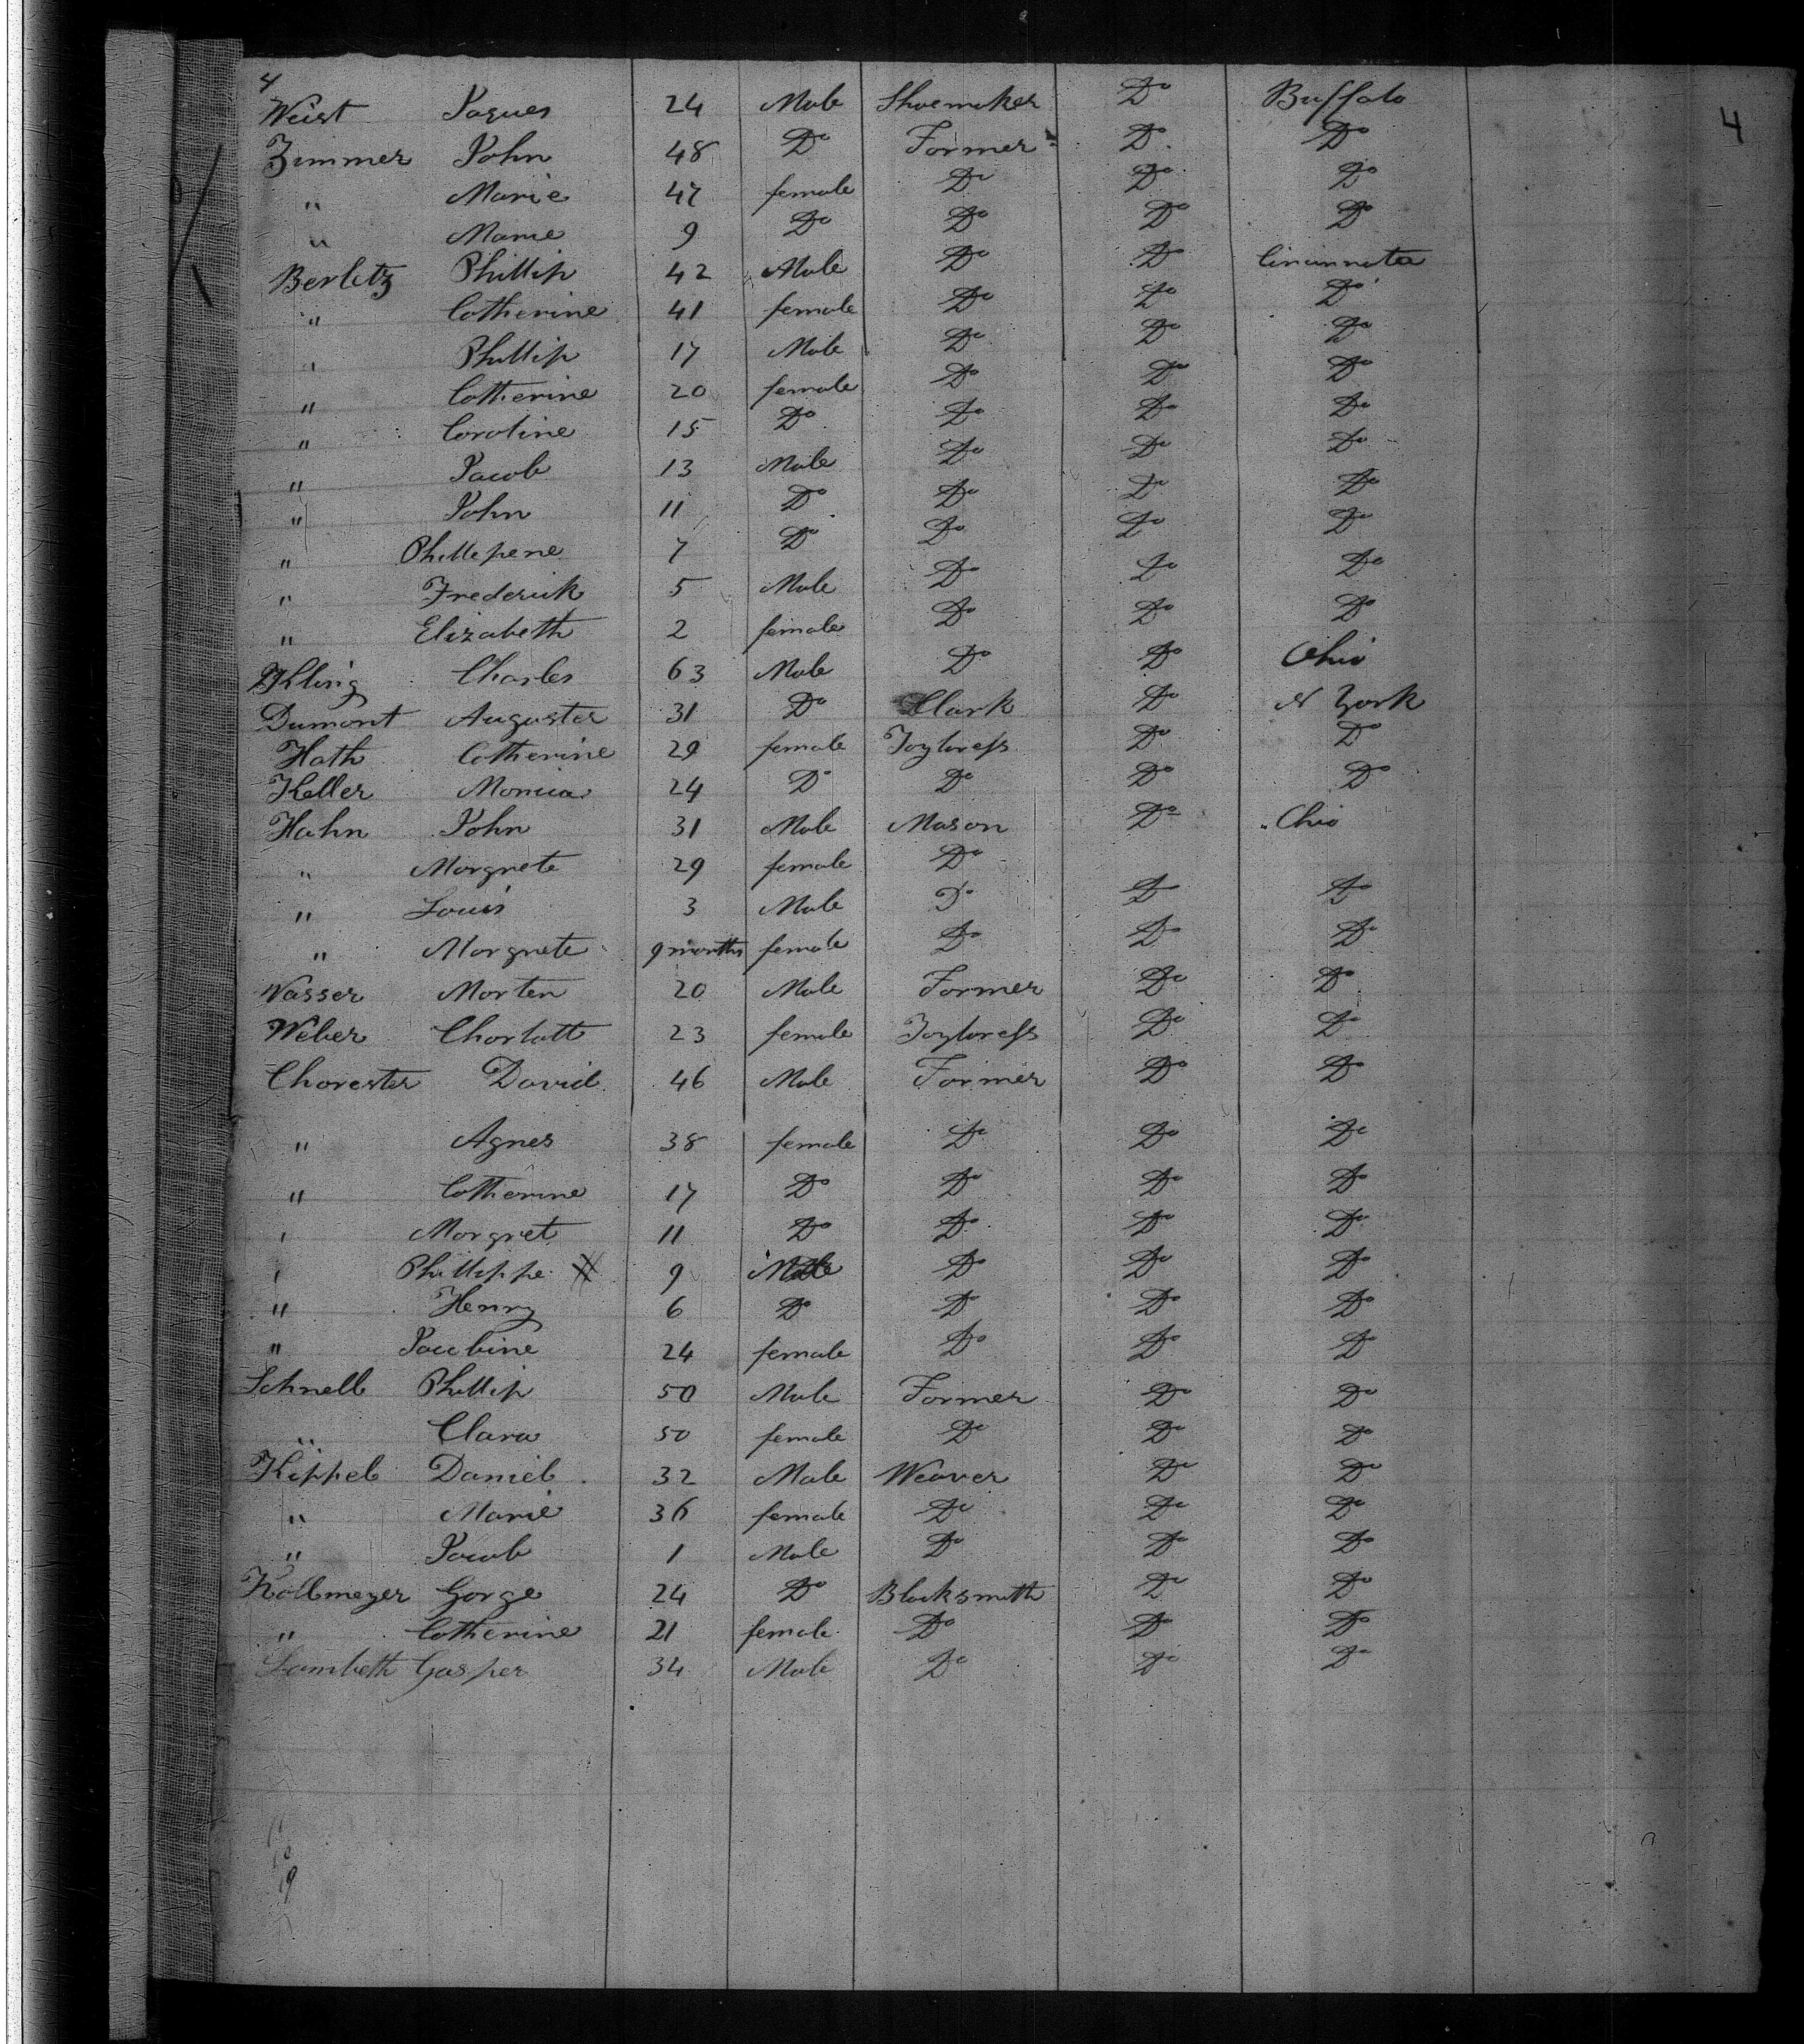 4
Weist Jaques 24 Male Shoemaker Do Buffalo 4
Zimmer John 48 Do Farmer Do Do
" Marie 47 female Do Do Do
" Marie 9 Do Do Do Do
Berletz Phillip 42 Male Do Do Cincinnatea
" Catherine 41 female Do Do Do
" Phillip 17 Male Do Do Do
" Catherine 20 female Do Do Do
" Caroline 15 Do Do Do Do
" Jacob 13 Male Do Do Do
" John 11 Do Do Do Do
" Phillepene 7 Do Do Do Do
" Frederick 5 Male Do Do Do
" Elizabeth 2 female Do Do Do
Kling Charles 63 Male Do Do Ohio
Dumont Auguster 31 Do Clark Do N York
Hath Catherine 29 female Tayloress Do Do
Keller Monica 24 Do Do Do Do
Hahn John 31 Male Mason Do Ohio
" Margrete 29 female Do
" Louis 3 Male Do Do Do
" Margrete 9 months female Do Do Do
Wasser Marten 20 Male Farmer Do Do
Weber Charlott 23 female Tayloress Do Do
Charester David 46 Male Farmer Do Do
" Agnes 38 female Do Do Do
" Catherine 17 Do Do Do Do
" Margret 11 Do Do Do Do
" Phillippe 9 Male Do Do Do
" Henry 6 Do Do Do Do
" Jacobine 24 female Do Do Do
Schnell Phillip 50 Male Farmer Do Do
" Clara 50 female Do Do Do
Kippel Daniel 32 Male Weaver Do Do
" Marie 36 female Do Do Do
" Jacob 1 Male Do Do Do
Kollmeyer Gorge 24 Do Blacksmith Do Do
" Catherine 21 female Do Do Do
Lambeth Gasper 34 Male Do Do Do